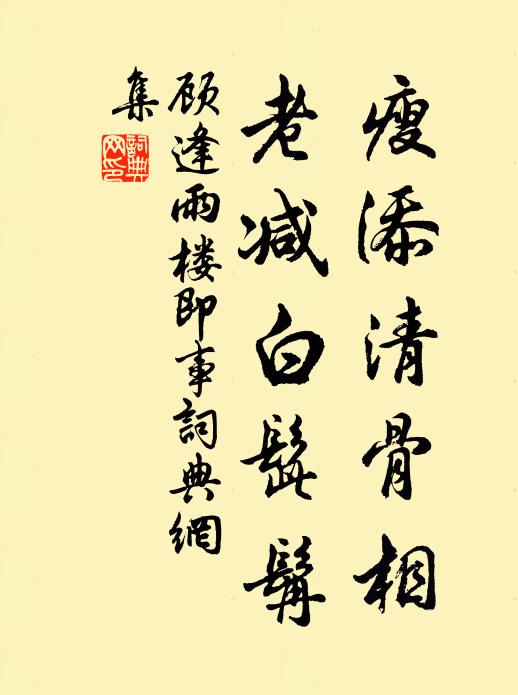 瘦添清骨相
老减白髭髯
顾逢雨楼即事詞典網
集
詞典
网印